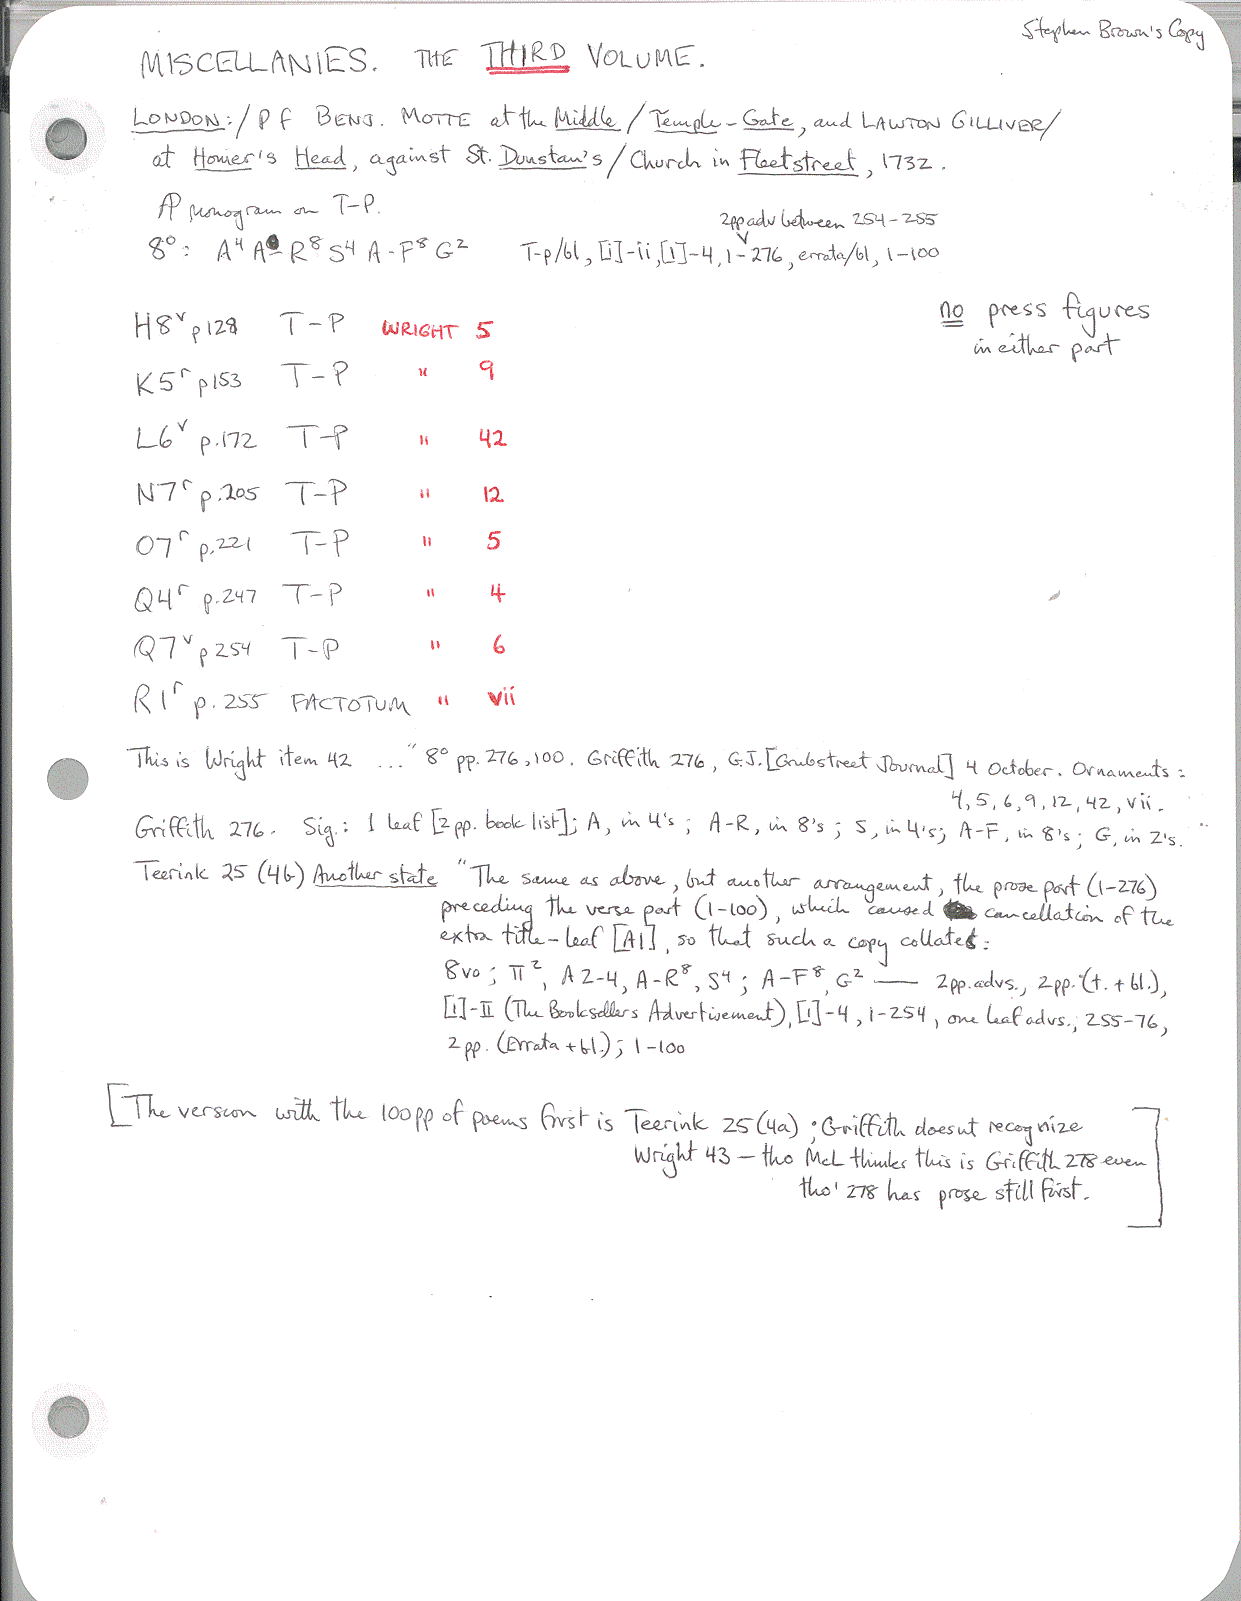 Stephen Brown's Copy
MISCELLANIES. THE THIRD VOLUME.
LONDON:/ P f BENJ. MOTTE at the Middle / Temple-Gate, and LAWTON GILLIVER/
at Homer's Head, against St. Dunstan's / Church in Fleetstreet, 1732.
AP monogram on T-P.
2pp adv between 254-255
8°: A⁴ A-R⁸ S⁴ A-F⁸ G² T-p/bl, [i]-ii, [1]-4, 1-276, errata/bl, 1-100
no press figures
in either part
H8ᵛ p128 T-P WRIGHT 5
K5ʳ p153 T-P " 9
L6ᵛ p.172 T-P " 42
N7ʳ p.205 T-P " 12
O7ʳ p.221 T-P " 5
Q4ʳ p.247 T-P " 4
Q7ᵛ p254 T-P " 6
R1ʳ p.255 FACTOTUM " vii
This is Wright item 42 ... "8° pp. 276, 100. Griffith 276, G.J. [Grubstreet Journal] 4 October. Ornaments:
4, 5, 6, 9, 12, 42, vii.
Griffith 276. Sig.: 1 leaf [2pp. book list]; A, in 4's; A-R, in 8's; S, in 4's; A-F, in 8's; G, in 2's."
Teerink 25 (4b) Another state "The same as above, but another arrangement, the prose part (1-276)
preceding the verse part (1-100), which caused cancellation of the
extra title-leaf [A1], so that such a copy collates:
8vo; π², A2-4, A-R⁸, S⁴; A-F⁸, G² — 2pp. advs., 2pp. (t. + bl.),
[i]-II (The Booksellers Advertisement), [1]-4, 1-254, one leaf advs., 255-76,
2pp. (Errata + bl.); 1-100
[The version with the 100pp of poems first is Teerink 25 (4a); Griffith doesnt recognize
Wright 43 - tho McL thinks this is Griffith 278 even
tho' 278 has prose still first.]